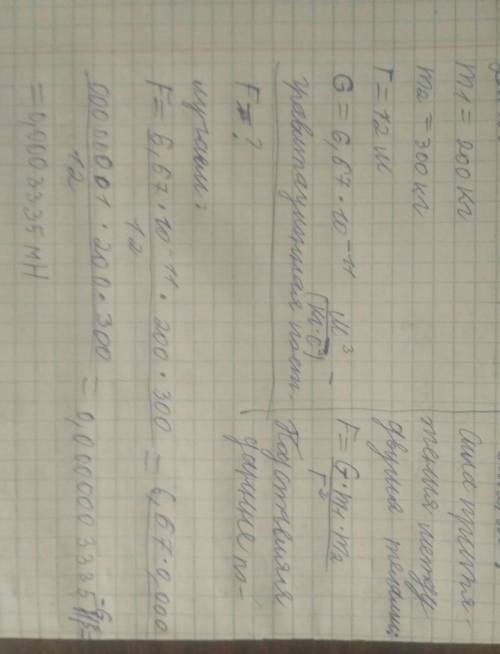 m₁ = 200 кг
m₂ = 300 кг
r = 12 м
G = 6,67 · 10⁻¹¹ м³/(кг·с²) –
гравитационная пост.
F = ?
Сила притя-
жения между
двумя телами:
F = G·m₁·m₂/r²
Подставляя
данные по-
лучаем:
F = 6,67 · 10⁻¹¹ · 200 · 300 / 12 = 6,67 · 0,000
00000001 · 200 · 300 / 12 = 0,0000003335
= 0,0003335 мН